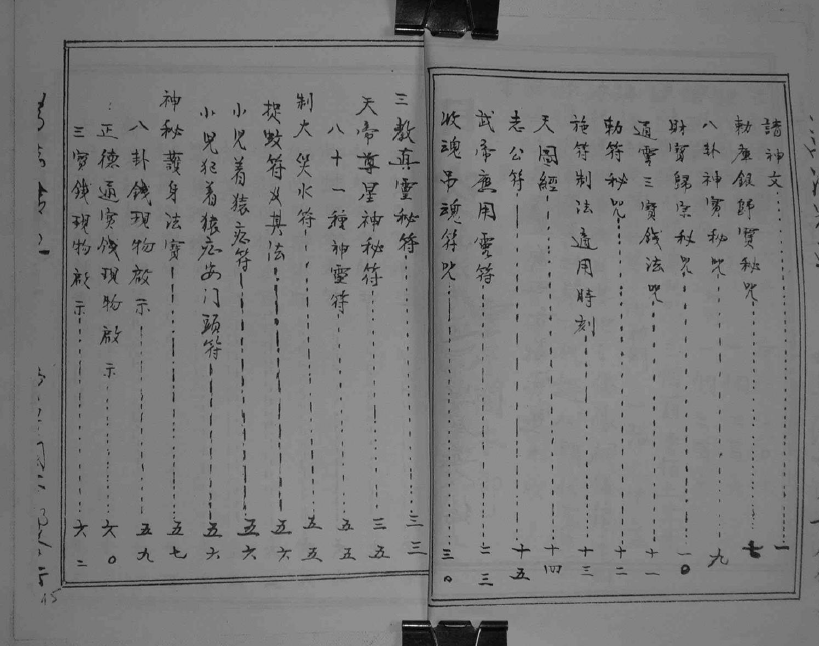 請神文 一
勅塵銀歸寶秘咒 七
八卦神寳秘咒 九
財寶歸宗秘咒 一0
通靈三寳錢法咒 十一
勅符秘咒 十二
施符制法適用時刻 十三
天圖經 十四
志公符 十五
武帝應用靈符 二三
收魂吊魂符咒 三0
三教真靈秘符 三三
天帝尊星神秘符 三五
八十一種神靈符 五五
制火災水符 五五
捉蚊符及其法 五六
小児着猿疪符 五六
小児犯着猿疪安门頭符 五六
神秘護身法寳 五七
八卦錢現物啟示 五九
正德通寳錢現物啟示 六0
三寳錢現物啟示 六二
45